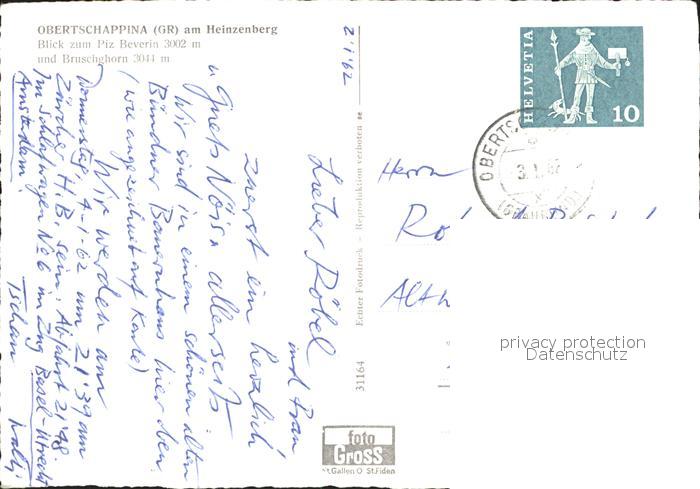 OBERTSCHAPPINA (GR) am Heinzenberg
Blick zum Piz Beverin 3002 m
und Bruschghorn 3044 m
2.1.62
Lieber Röbel
und Frau
zuerst ein herzlich
u guets Nöis allerseits.
Wir sind in einem schönen alten
Bündner Bauernhaus hier oben
(wie angezeichnet auf Karte)
Wir werden am
Donnerstag, 4-1-62 um 21'39 am
Zürcher H.B. sein. Abfahrt 21'48.
Im Schlafwagen No 6 im Zug Basel-Utrecht
Amsterdam
Tschau
31164
Echter Fotodruck – Reproduktion verboten
foto
Gross
St.Gallen O St.Fiden
HELVETIA
10
Herrn
privacy protection
Datenschutz